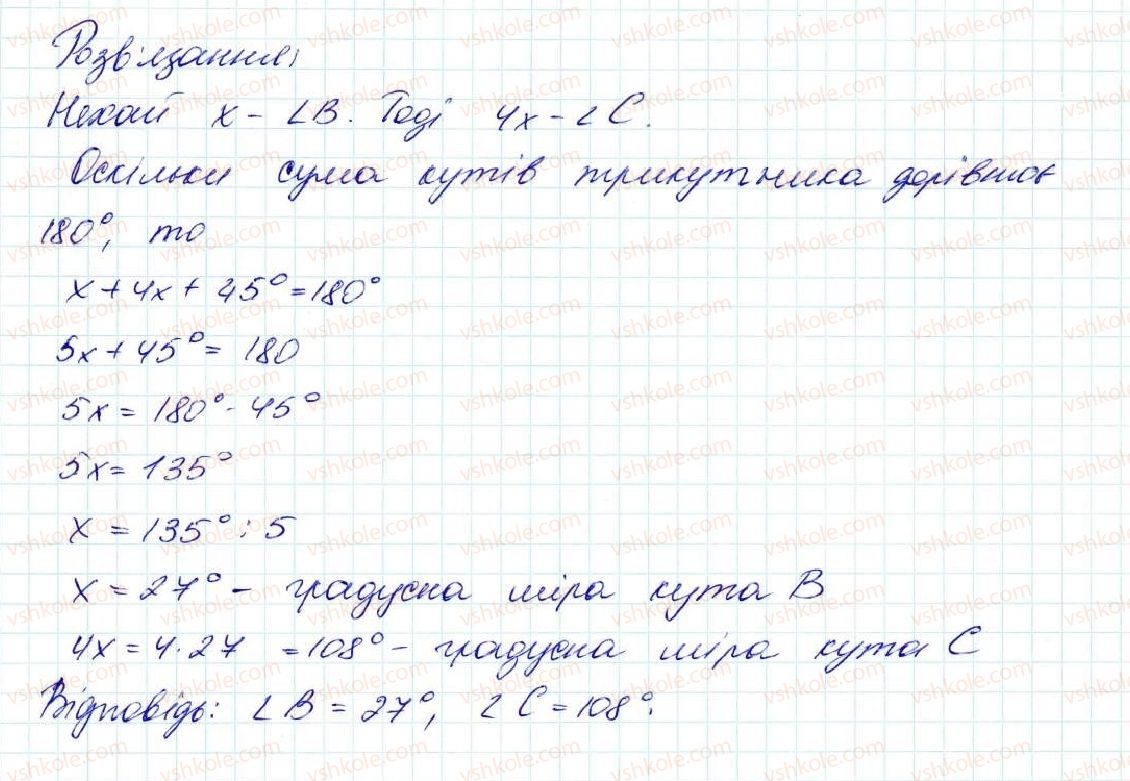 Розв'язання:
Нехай x - ∠B. Тоді 4x - ∠C.
Оскільки сума кутів трикутника дорівнює
180°, то
x + 4x + 45° = 180°
5x + 45° = 180
5x = 180° - 45°
5x = 135°
x = 135° : 5
x = 27° - градусна міра кута B
4x = 4·27 = 108° - градусна міра кута C
Відповідь: ∠B = 27°, ∠C = 108°.